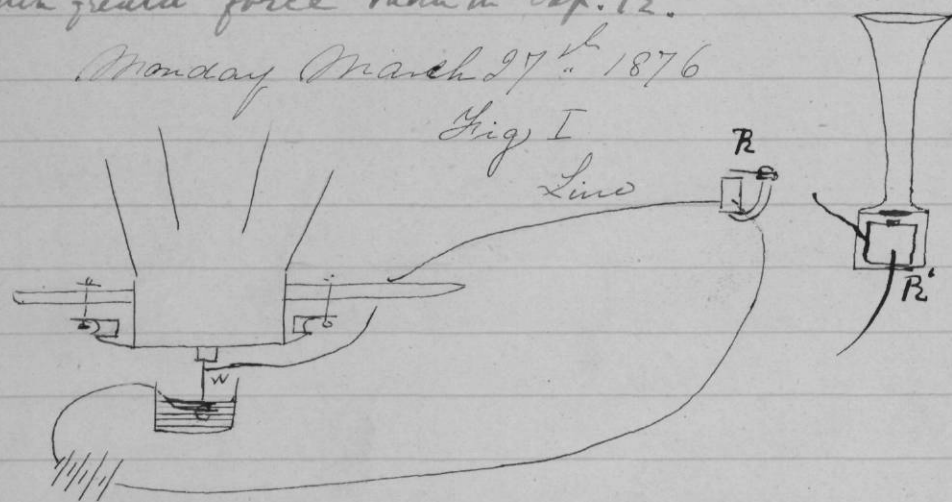 greater force than in Exp. 12.
Monday March 27th 1876
Fig I
R
Line
R'
W